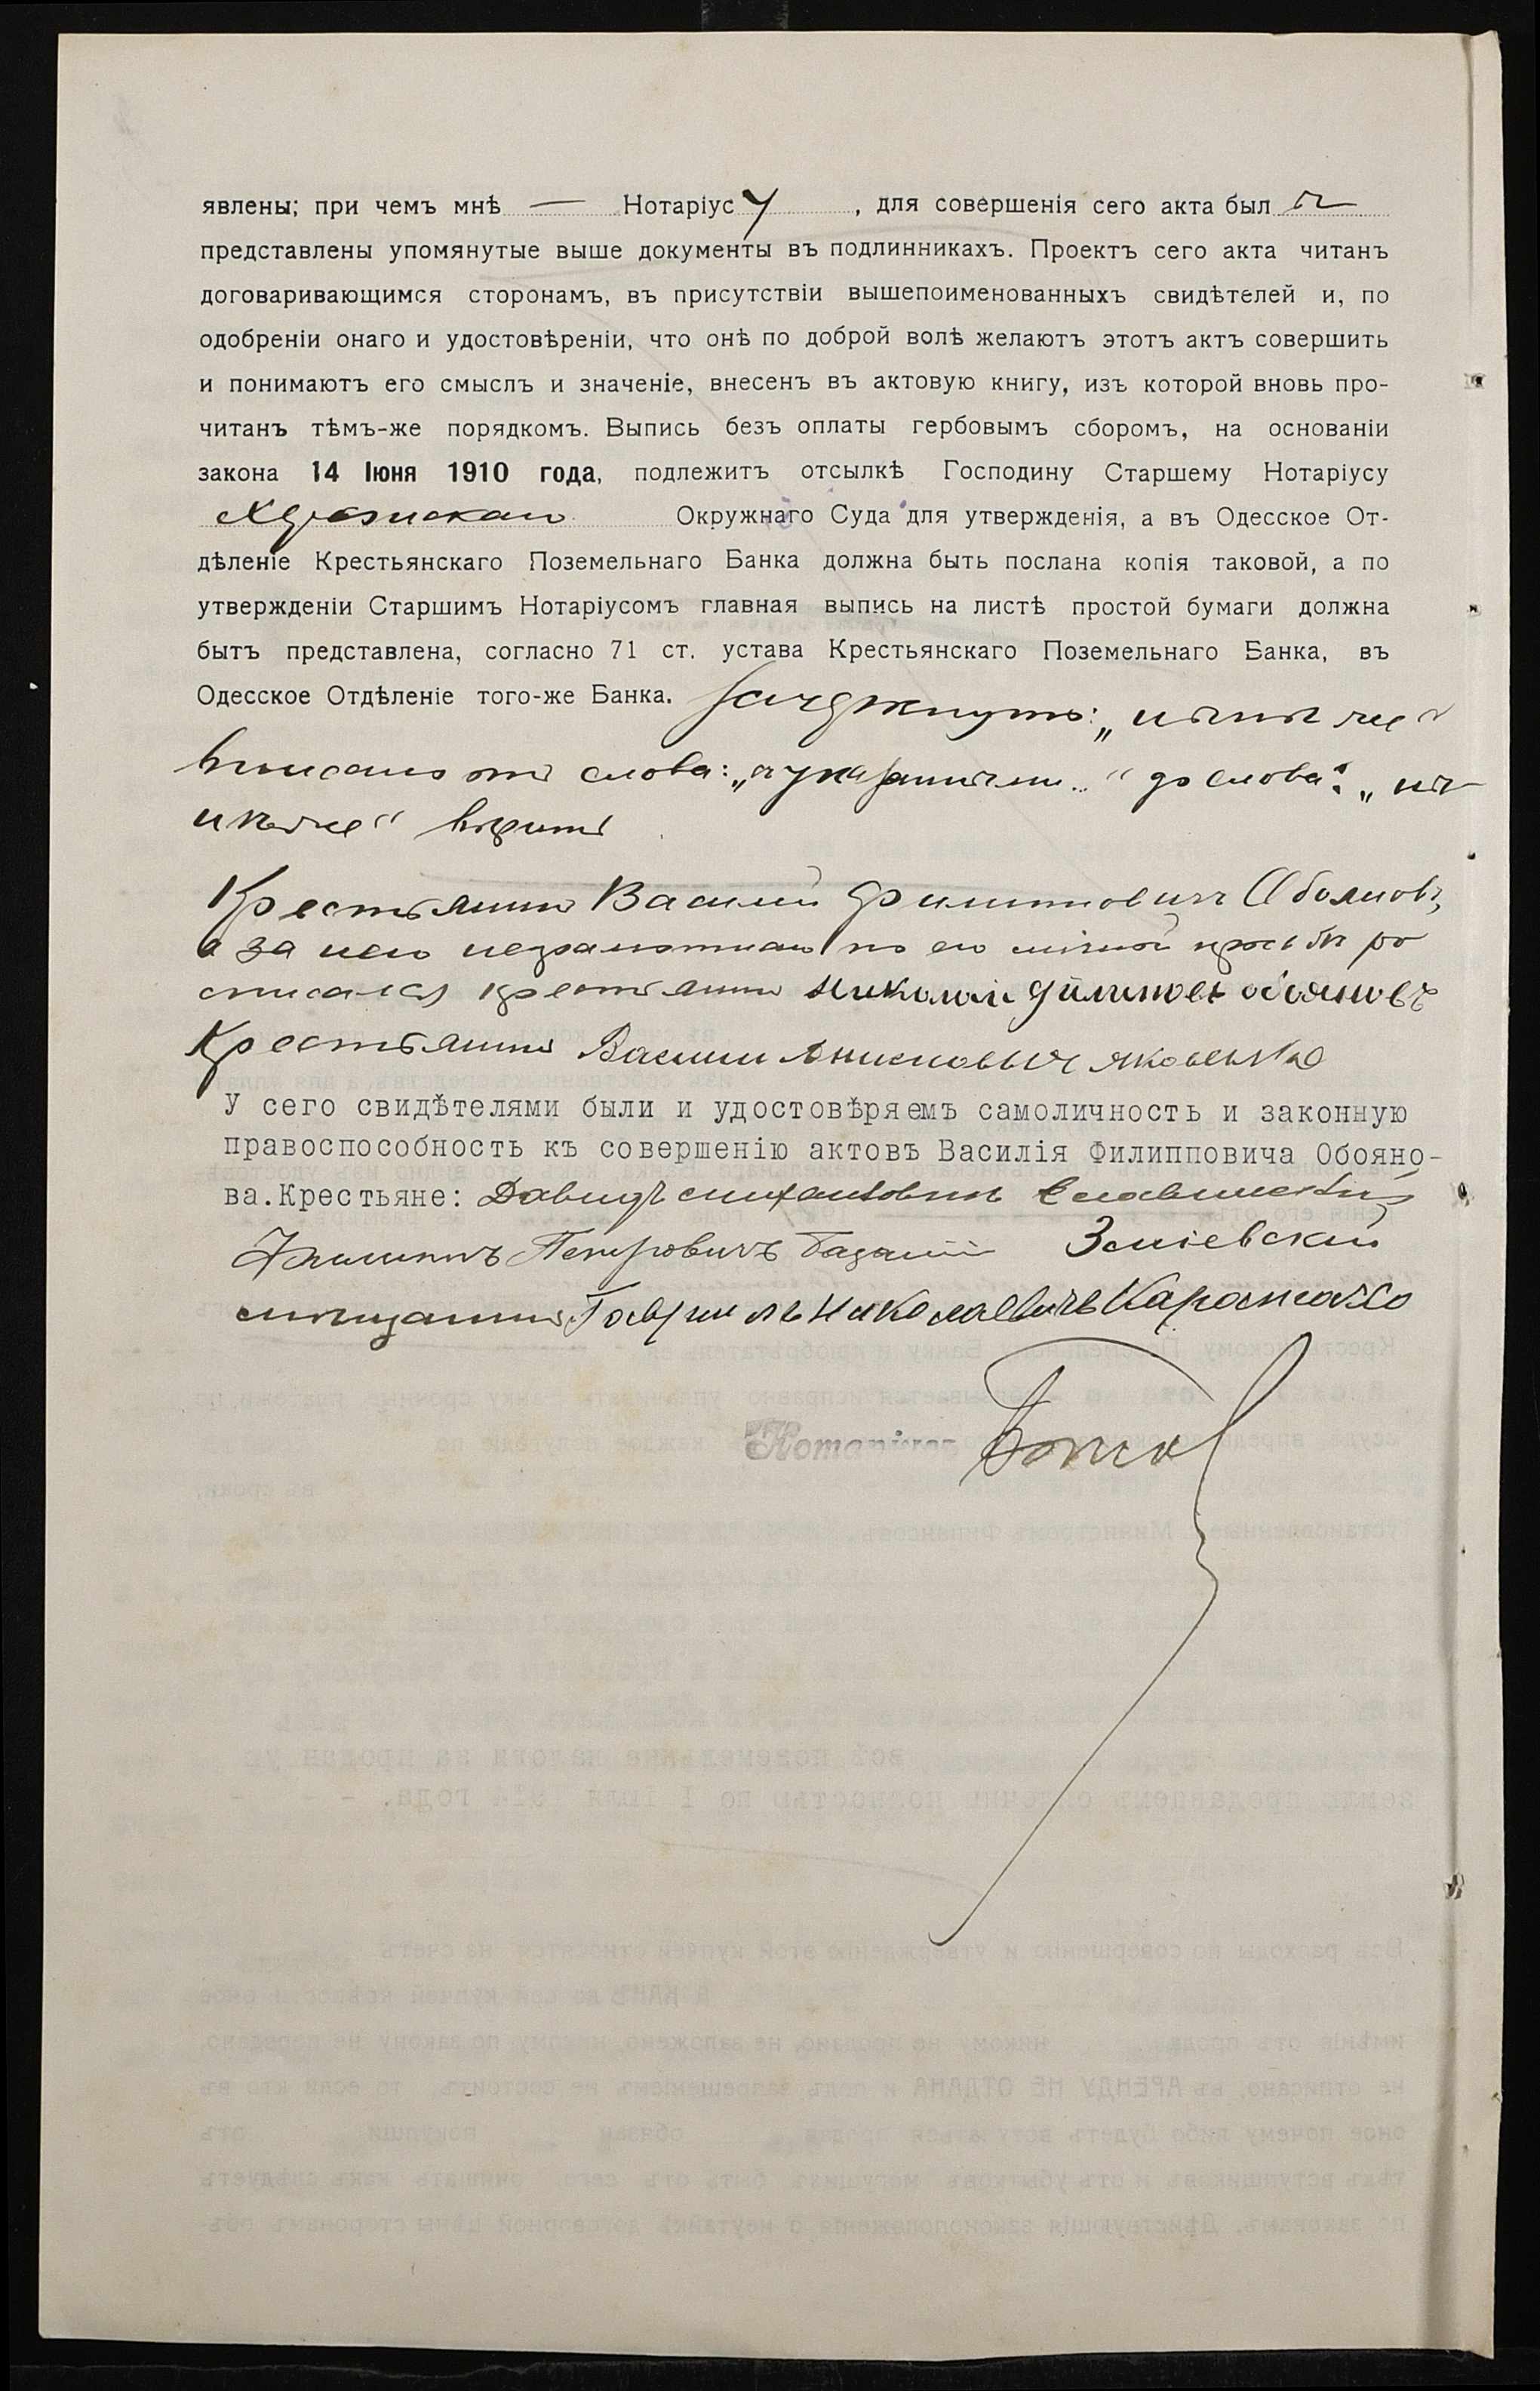 явлены; при чемъ мнѣ — Нотаріусу, для совершенія сего акта были
представлены упомянутые выше документы въ подлинникахъ. Проектъ сего акта читанъ
договаривающимся сторонамъ, въ присутствіи вышепоименованныхъ свидѣтелей и, по
одобреніи онаго и удостовѣреніи, что онѣ по доброй волѣ желаютъ этотъ актъ совершить
и понимаютъ его смыслъ и значеніе, внесенъ въ актовую книгу, изъ которой вновь про-
читанъ тѣмъ-же порядкомъ. Выпись безъ оплаты гербовымъ сборомъ, на основаніи
закона 14 Іюня 1910 года, подлежитъ отсылкѣ Господину Старшему Нотаріусу
Херсонскаго Окружнаго Суда для утвержденія, а въ Одесское От-
дѣленіе Крестьянскаго Поземельнаго Банка должна быть послана копія таковой, а по
утвержденіи Старшимъ Нотаріусомъ главная выпись на листѣ простой бумаги должна
быть представлена, согласно 71 ст. устава Крестьянскаго Поземельнаго Банка, въ
Одесское Отдѣленіе того-же Банка.
слова: до слова:
Крестьянинъ Василій Филипповичъ Обояновъ,
а за него неграмотнаго по его личной просьбѣ ро
списался крестьянинъ Николай Филиповъ обояновъ
Крестьянинъ Василий Анисновичъ яковенко
У сего свидѣтелями были и удостовѣряемъ самоличность и законную
правоспособность къ совершенію актовъ Василія Филипповича Обояно-
ва. Крестьяне: Давидъ
Филиппъ Петровичъ Базалій Зміевскій
мѣщанинъ Гавриилъ Николаевичъ
Нотаріусъ